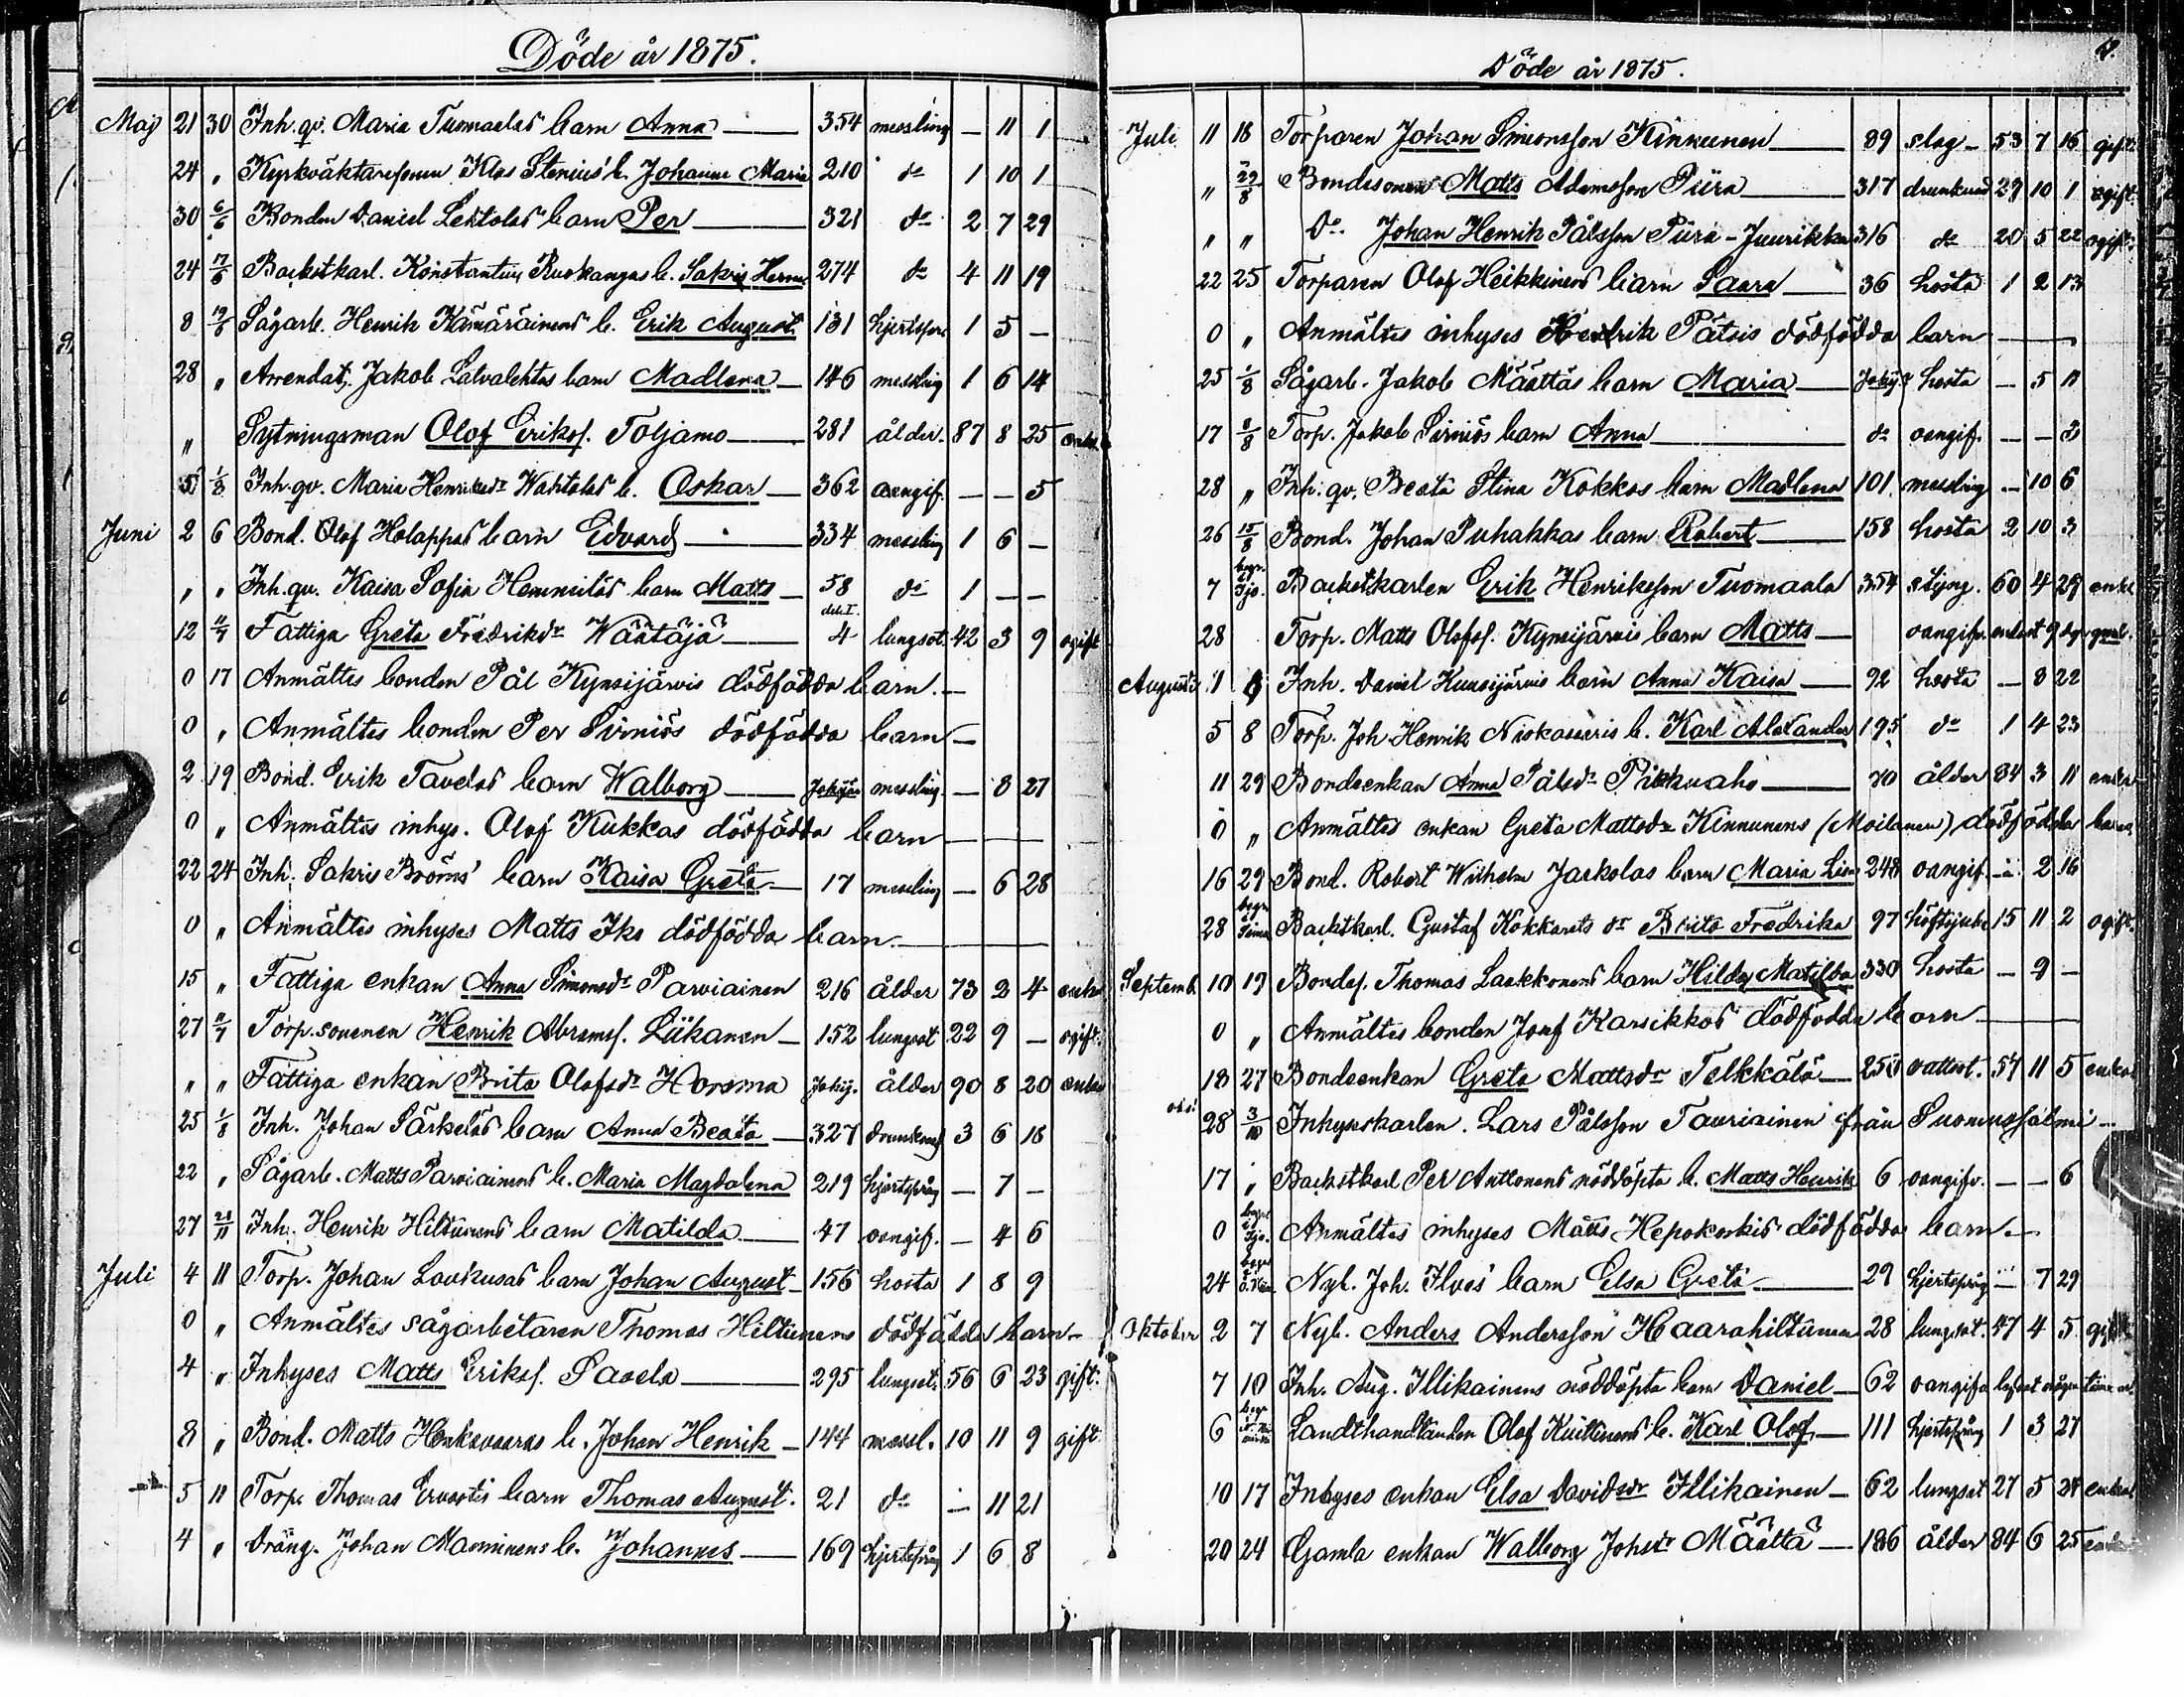 Döde år 1875.
Maj 21 30 Inh. qv. Maria Tuomaalas barn Anna — 354 messling — 11 1
24 " Kyrkväktaresonen Klas Stenius' b. Johanna Maria 210 do 1 10 1
30 6/6 Bonden Daniel Lehtolas barn Per — 321 do 2 7 29
24 Backstkarl. Konstantin Ruokangas b. Sakris Herm. 274 do 4 11 19
8 Sågarb. Henrik Kämäräinens b. Erik August 131 1 5 —
28 " Arrendat. Jakob Latvalehtos barn Madlena — 146 messling 1 6 14
" Sytningsman Olof Eriks. Toljamo — 281 ålder. 87 8 25
5 1/8 Inh. qv. Maria Henriksdr Wahtolas b. Oskar — 362 oangif. — — 5
Juni 2 6 Bond. Olof Holappas barn Edvard — 334 messling 1 6 —
" " Inh. qv. Kaisa Sofia Hemmiläs barn Matts — 58 do 1 — —
12 11/7 Fattiga Greta Fredriksdr Wäätäjä — 4 lungsot. 42 3 9 ogift
0 17 Anmältes bonden Pål Kynsijärvis dödfödda barn. —
0 " Anmältes bonden Per Sirniös dödfödda barn —
2 19 Bond. Erik Tavelas barn Walborg — messling. — 8 27
0 " Anmältes inhys. Olof Kukkas dödfödda barn —
22 24 Inh. Sakris Bröms' barn Kaisa Greta — 17 messling — 6 28
0 " Anmältes inhyses Matts Iks dödfödda barn. —
15 " Fattiga enkan Anna Simonsdr Parviainen 216 ålder 73 2 4 enka
27 11/7 Torp.sonenen Henrik Abramsf. Liikanen — 152 lungsot 22 9 — ogift.
" " Fattiga enkan Brita Olofsdr Horsma Jokij. ålder 90 8 20 enka
25 1/8 Inh. Johan Särkeläs barn Anna Beata — 327 drunknad 3 6 18
22 " Sågarb. Matts Parviainens b. Maria Magdalena 219 hjertspång — 7 —
27 21/11 Inh. Henrik Hiltunens barn Matilda — 47 oangif. — 4 6
Juli 4 11 Torp. Johan Loukusas barn Johan August — 156 hosta 1 8 9
0 " Anmältes sågarbetaren Thomas Hiltunens dödfödda barn —
4 " Inhyses Matts Eriksf. Tavela — 295 lungsot. 56 6 23 gift.
8 " Bond. Matts Honkavaaras b. Johan Henrik — 144 messl. 10 11 9 gift
5 11 Torp. Thomas Ervastis barn Thomas August. 21 do — 11 21
4 " Dräng. Johan Manninens b. Johannes — 169 hjertspång 1 6 8
Döde år 1875.
Juli 11 18 Torparen Johan Simonsson Kinnunen — 89 slag — 53 7 16 gift.
" 29/8 Bondesonen Matts Adamsson Piira — 317 drunknad 29 10 1 ogift.
" " Do. Johan Henrik Pålsson Piira-Juurikka 316 do 20 5 22 ogift.
22 25 Torparen Olof Heikkinens barn Saara — 36 hosta 1 2 13
0 " Anmältes inhyses Hendrik Pätsis dödfödda barn —
25 1/8 Sågarb. Jakob Määttäs barn Maria — Jokij. hosta — 5 11
17 8/8 Torp. Jakob Sirniös barn Anna — do oangif. — — 3
28 " Inh. qv. Beata Stina Kokkos barn Madlena 101 messling — 10 6
26 15/8 Bond. Johan Puhakkas barn Robert — 158 hosta 2 10 3
7 Backstkarlen Erik Henriksson Tuomaala 354 60 4 29 enkl
28 Torp. Matts Olofsf. Kynsijärvis barn Matts — oangifv. endast 9 dgr gml.
Augusti 1 8 Inh. Daniel Kuusijärvis barn Anna Kaisa — 92 hosta — 8 22
5 8 Torp. Joh Henrik Niskavaaris b. Karl Alexander 195 do 1 4 23
11 29 Bondeenkan Anna Pålsdr Pikkuaho — 70 ålder 84 3 11 enka
0 " Anmältes enkan Greta Mattsdr Kinnunens (Moilanen) dödfödda barn
16 29 Bond. Robert Wilhelm Jaakolas barn Maria Lisa 248 oangif. — 2 16
28 Backstkarl. Gustaf Kokkarets dr Brita Fredrika 97 höftsjuka 15 11 2 ogift.
Septemb. 10 19 Bondef. Thomas Laakkonens barn Hilda Matilda 330 hosta — 9 —
0 " Anmältes bonden Josef Karsikkos dödfödda barn —
18 27 Bondeenkan Greta Mattsdr Telkkälä — 250 vattsot. 57 11 5 enka
obs! 28 3/10 Inhyseskarlen. Lars Pålsson Tauriainen från Suomussalmi —
17 " Backstkarl Per Anttonens nöddöpta b. Matts Henrik 6 oangifv. — — 6
0 Anmältes inhyses Matts Hepokorkis dödfödda barn —
24 Nyb. Joh. Ilves' barn Elsa Greta — 29 hjertspång — 7 29
Oktober 2 7 Nyb. Anders Andersson Haarahiltunen 28 lungsot. 47 4 5 gift
7 10 Inh. Aug. Illikainens nöddöpta barn Daniel — 62 oangifv lefvat någon
6 Landthandlanden Olof Kuittinens b. Karl Olof — 111 hjertspång 1 3 27
10 17 Inhyses enkan Elsa Davidsdr Illikainen — 62 lungsot 27 5 24 enka
20 24 Gamla enkan Walborg Johsdr Määttä — 186 ålder 84 6 25 enka